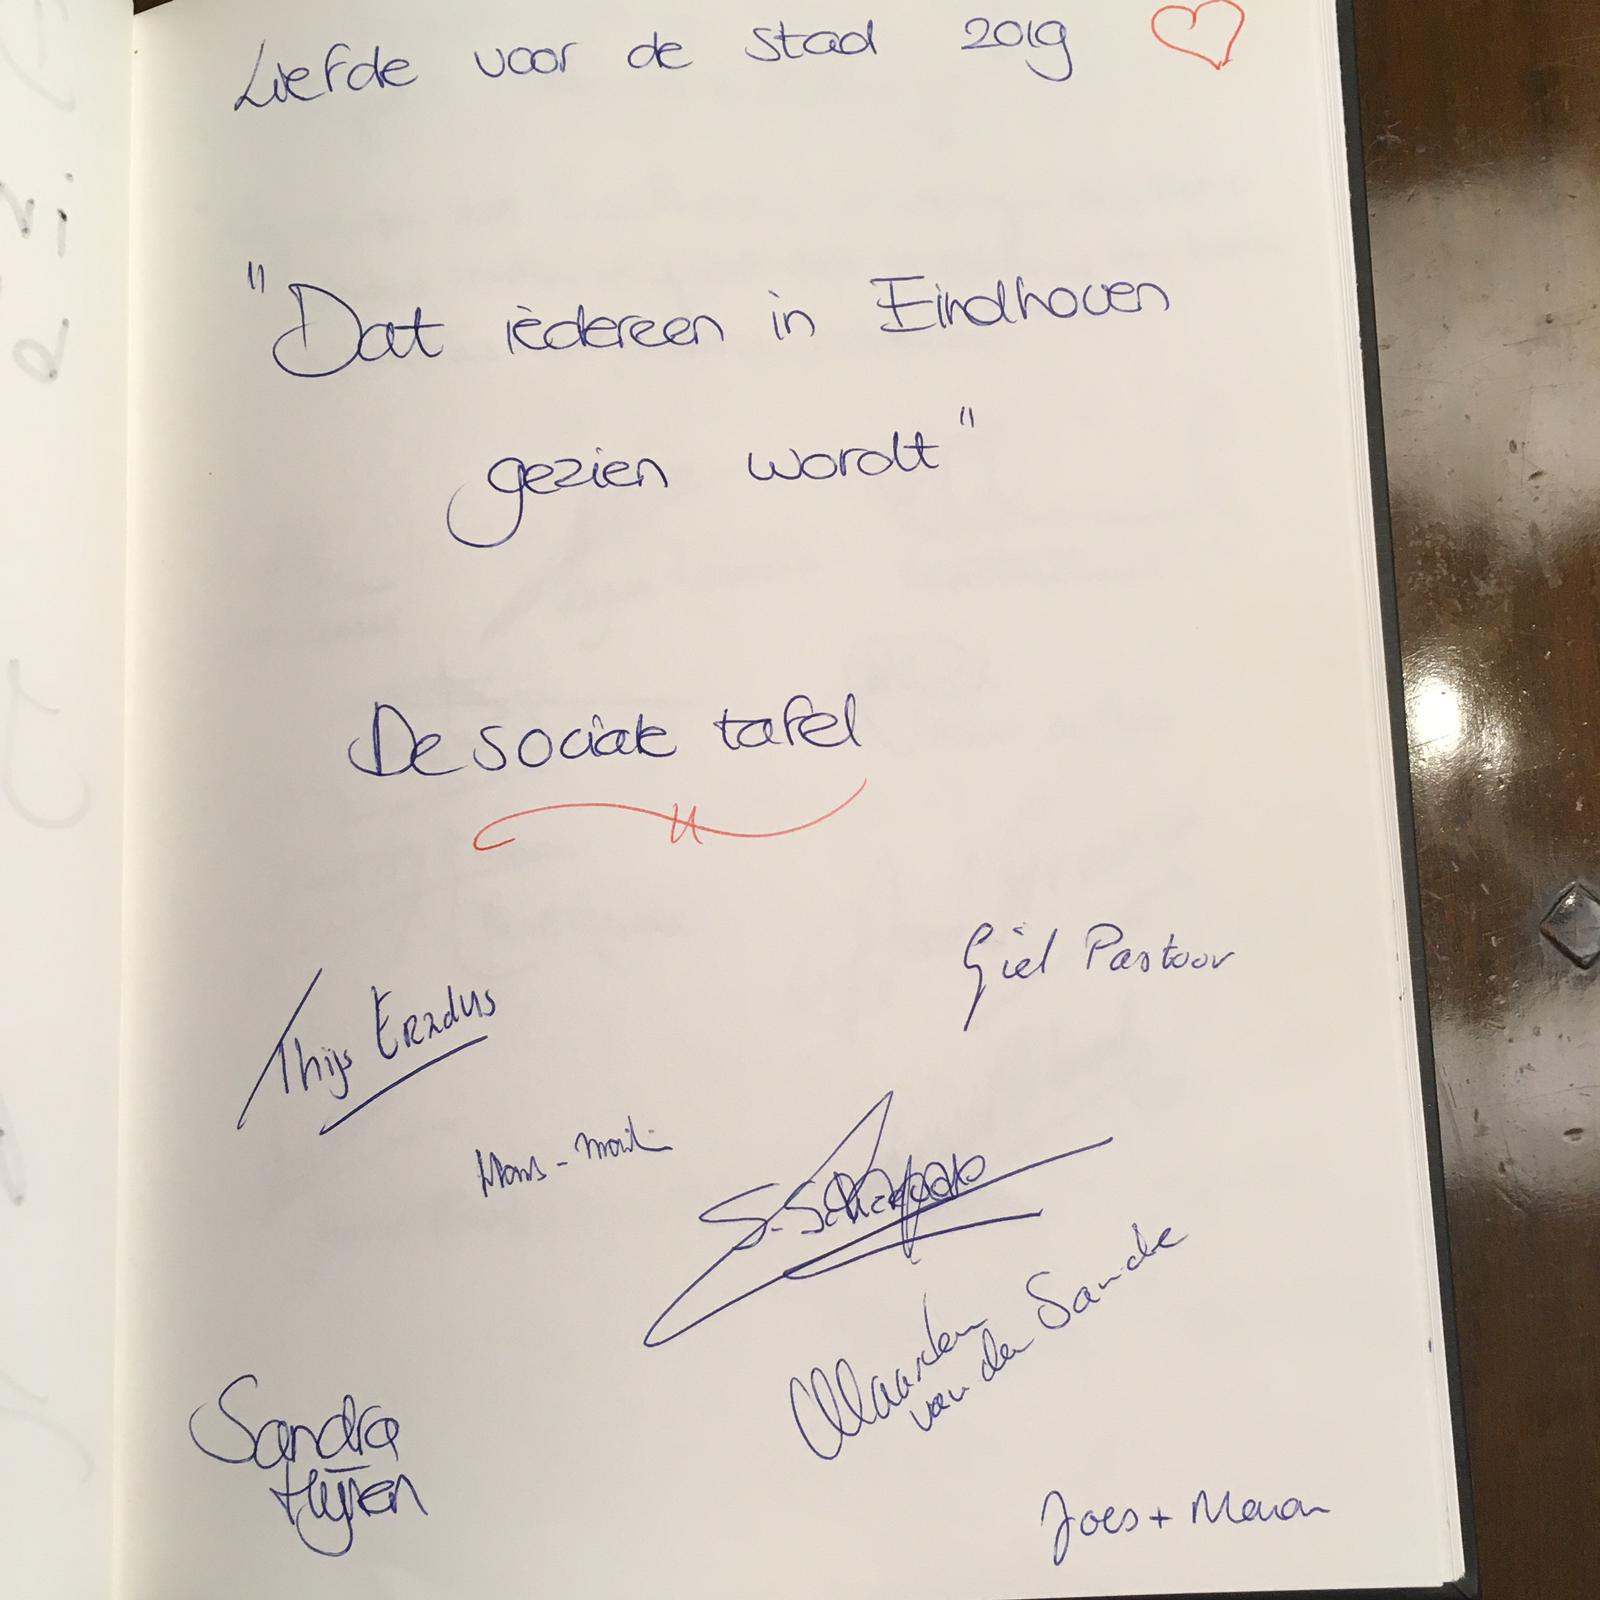 Liefde voor de stad 2019
"Dat iedereen in Eindhoven
gezien wordt"
De sociale tafel
Giel Pastoor
Thijs Eradus
S. Schepers
Maarten
van der Sande
Sandra
Joes + Manon